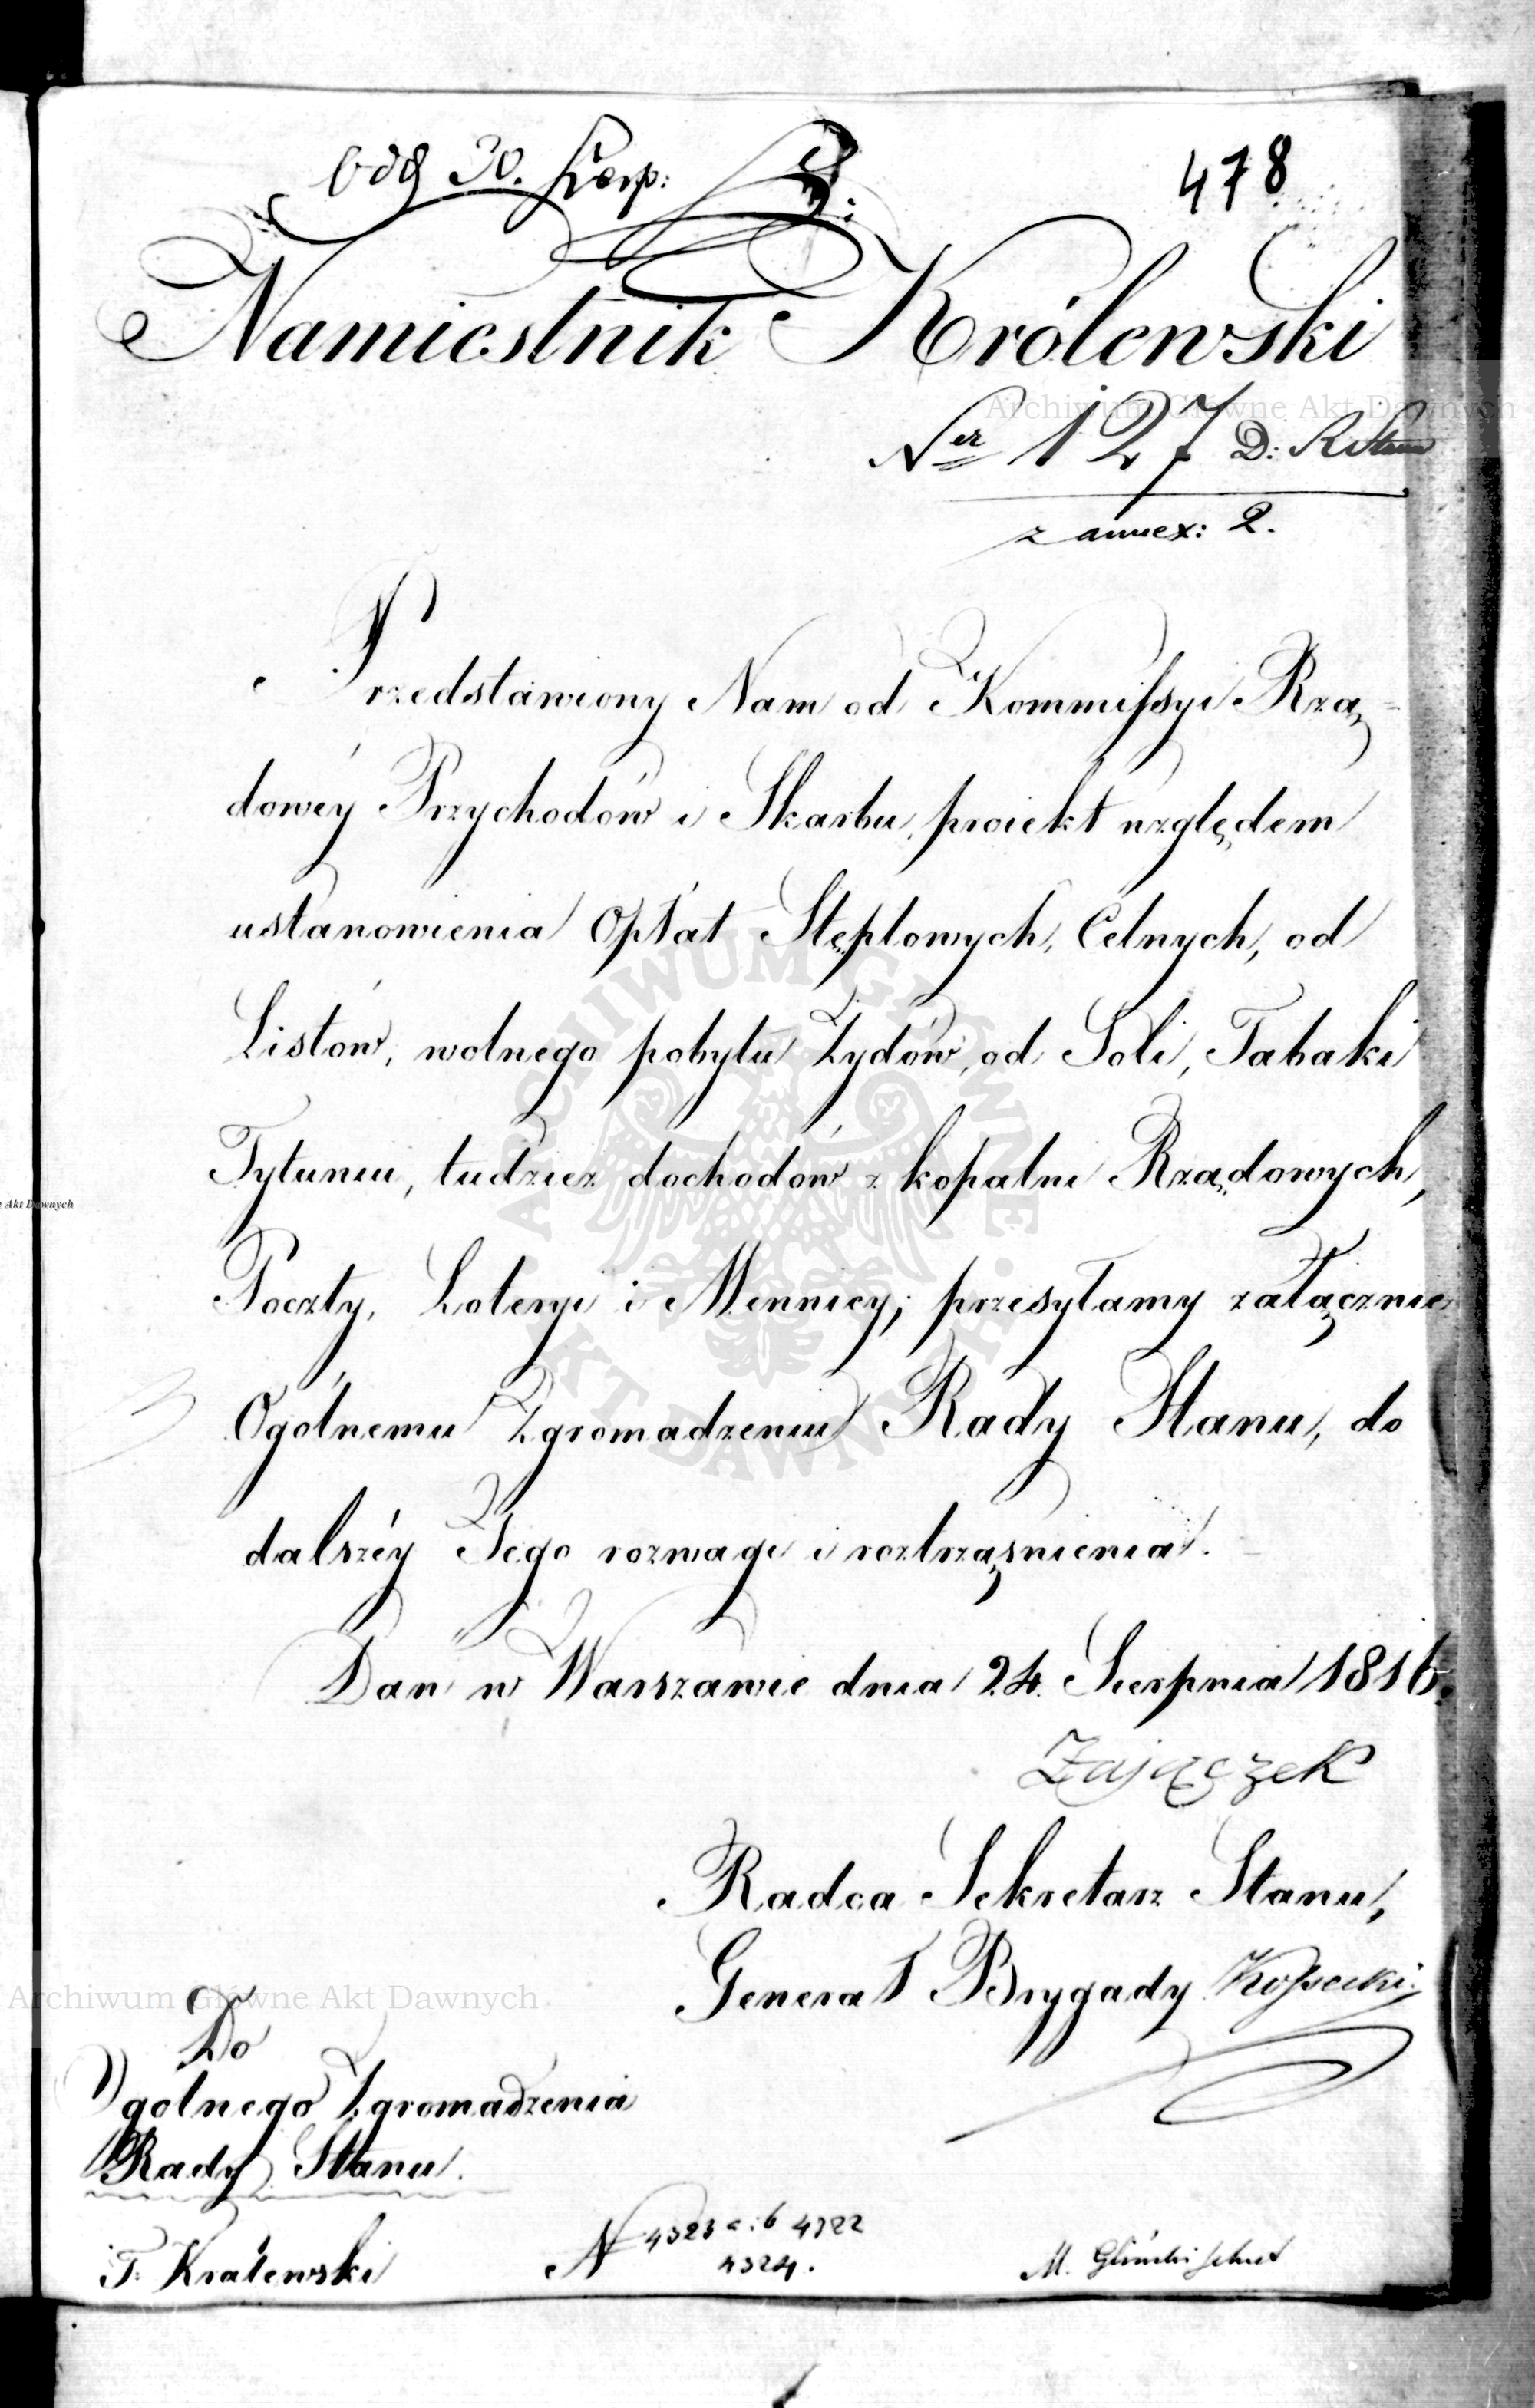 odd 30. Sierp:
478
Namiestnik Królewski
Ner 127 D:
z annex: 2.
Przedstawiony Nam od Kommissyi Rzą-
dowéy Przychodów i Skarbu, proiekt względem
ustanowienia Opłat Stęplowych, Celnych, od
Listów, wolnego pobytu Żydów, od Soli, Tabaki
Tytuniu, tudzież dochodów z kopalni Rządowych,
Poczty, Loteryi i Mennicy; przesyłamy załącznie
Ogólnemu Zgromadzeniu Rady Stanu, do
dalszéy Jego rozwagi i roztrząśnienia.
Dan w Warszawie dnia 24. Sierpnia 1816.
Zajączek
Radca Sekretarz Stanu,
Generał Brygady Kossecki
Do
Ogólnego Zgromadzenia
Rady Stanu.
T. Kralewski
N 4323 a: b 4322
4324.
M. Gliński
Archiwum Główne Akt Dawnych
Archiwum Główne Akt Dawnych
Akt Dawnych
ARCHIWUM GŁÓWNE AKT DAWNYCH